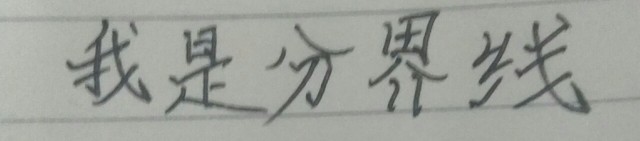 我是分界线